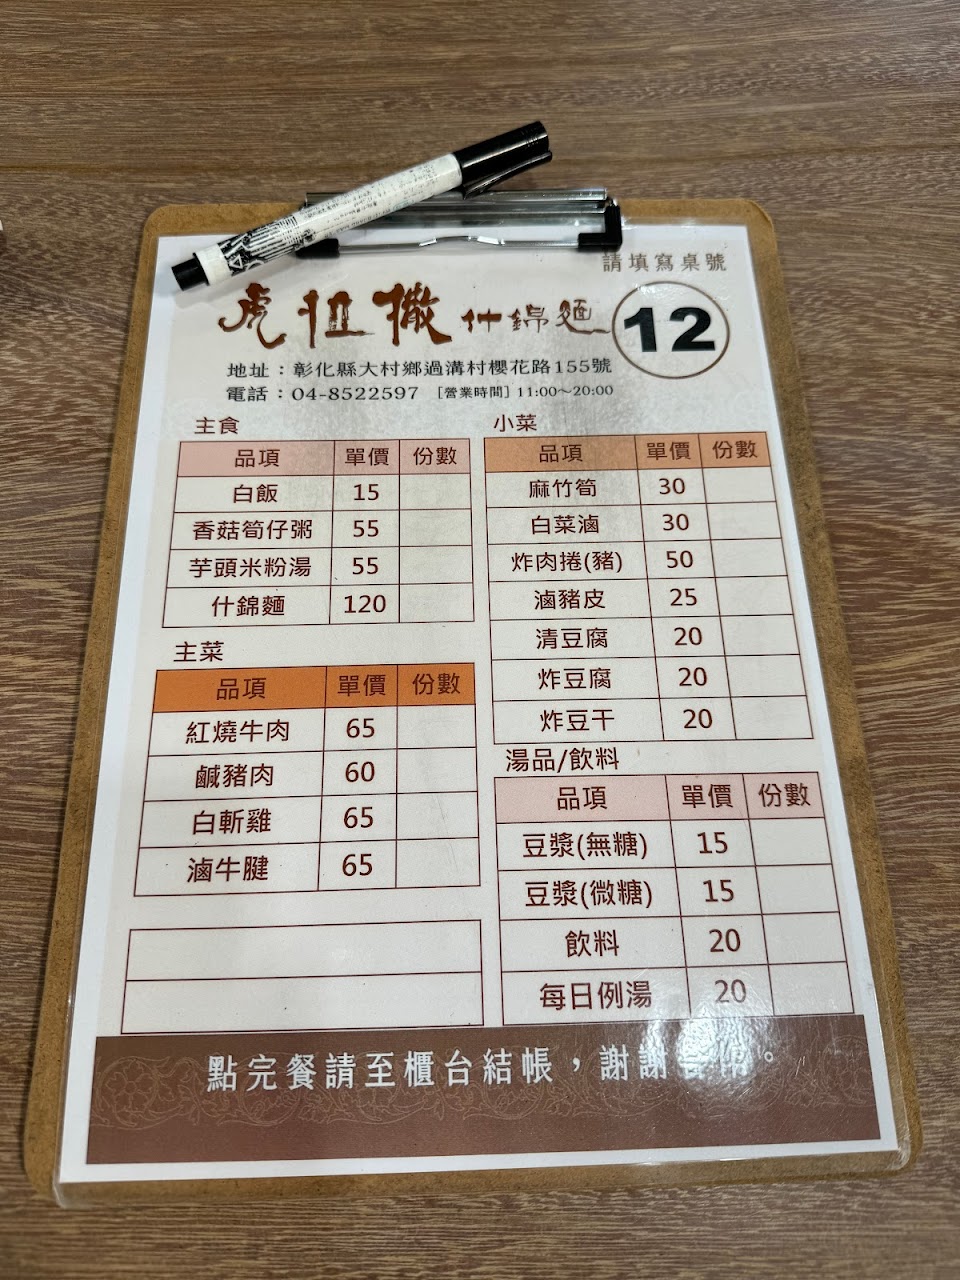 請填寫桌號
虎担撒什錦麵
12
地址：彰化縣大村鄉過溝村櫻花路155號
電話：04-8522597 [營業時間] 11:00～20:00
主食
品項 單價 份數
白飯 15
香菇筍仔粥 55
芋頭米粉湯 55
什錦麵 120
主菜
品項 單價 份數
紅燒牛肉 65
鹹豬肉 60
白斬雞 65
滷牛腱 65
小菜
品項 單價 份數
麻竹筍 30
白菜滷 30
炸肉捲(豬) 50
滷豬皮 25
清豆腐 20
炸豆腐 20
炸豆干 20
湯品/飲料
品項 單價 份數
豆漿(無糖) 15
豆漿(微糖) 15
飲料 20
每日例湯 20
點完餐請至櫃台結帳，謝謝合作。